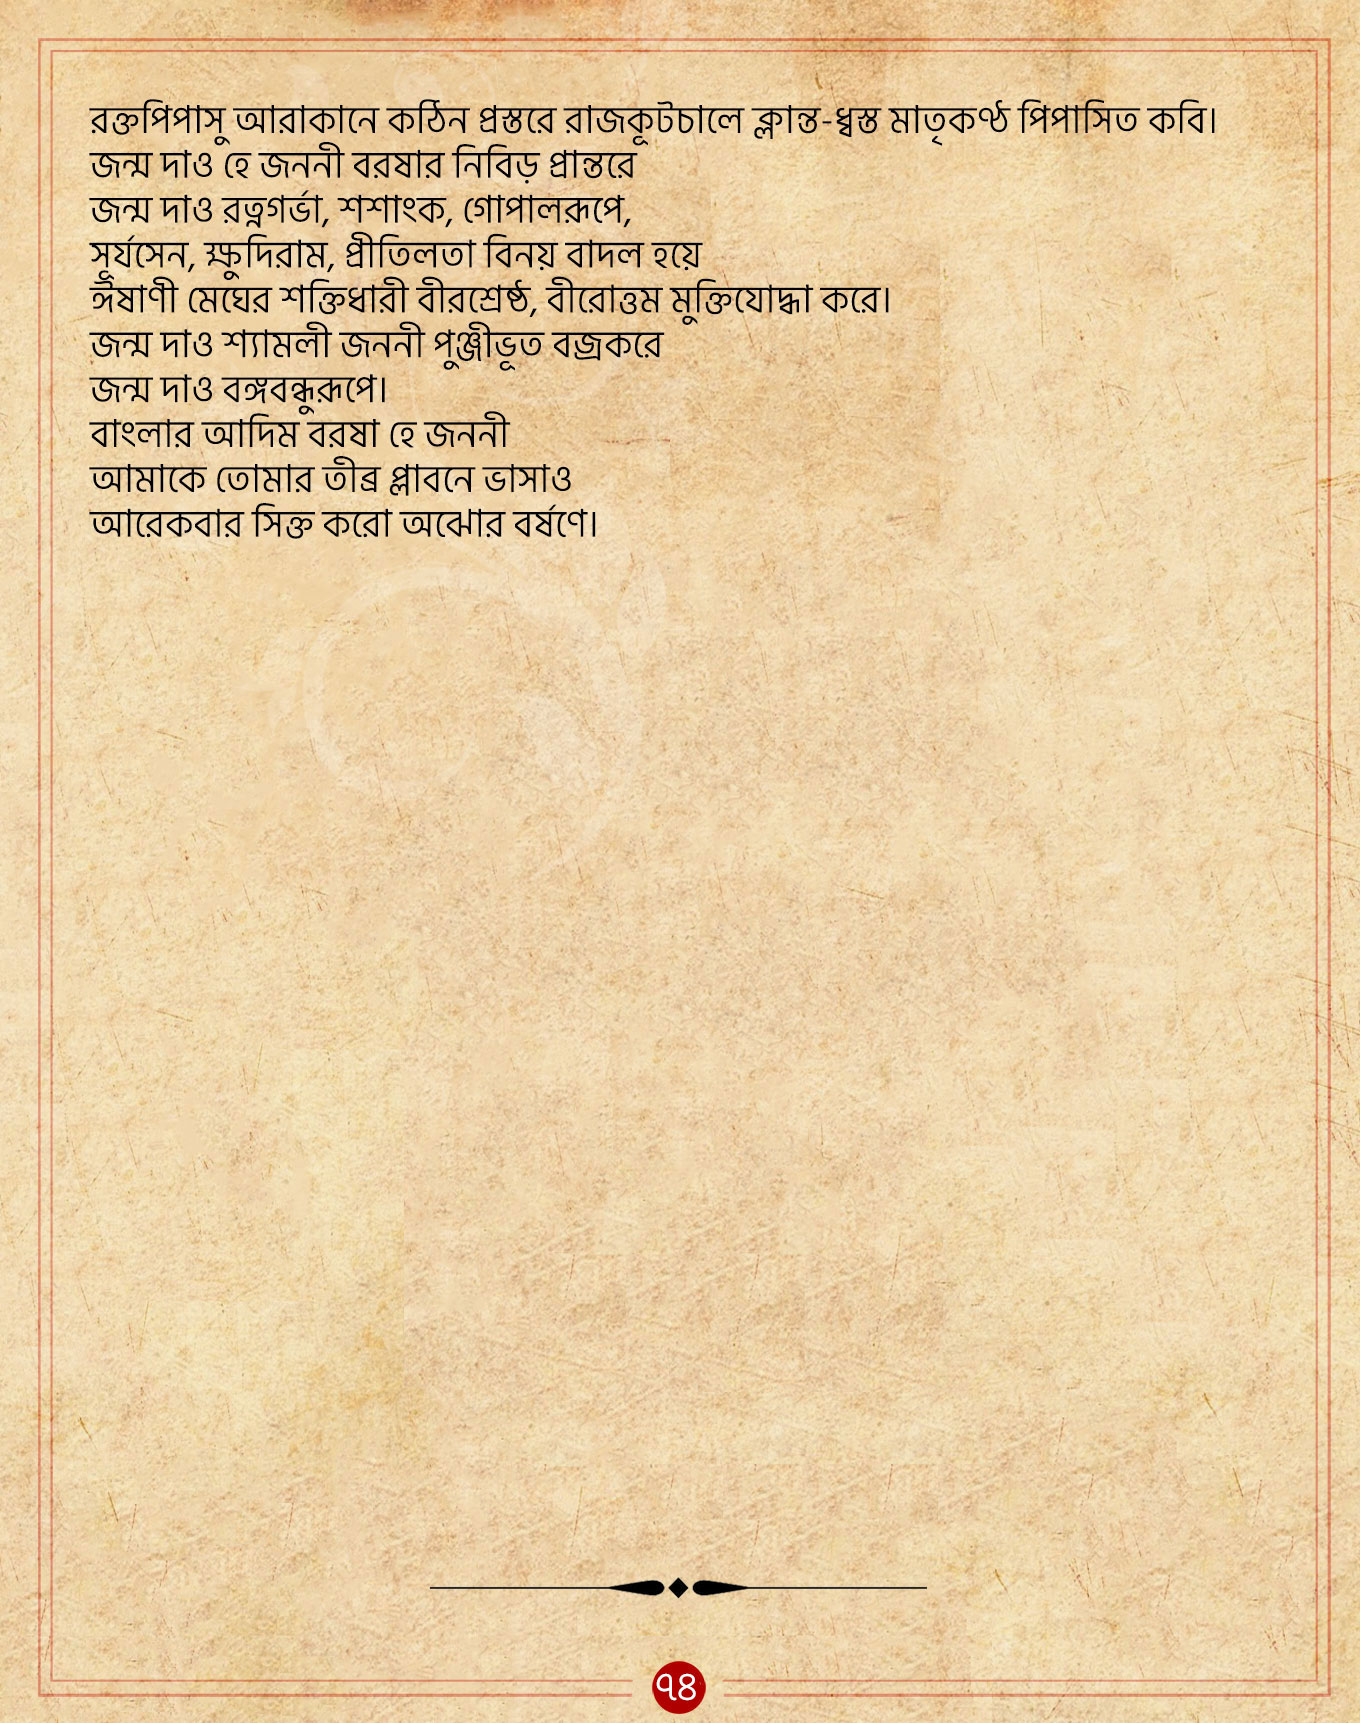 রক্তপিপাসু আরাকানে কঠিন প্রস্তরে রাজকূটচালে ক্লান্ত-ধ্বস্ত মাতৃকণ্ঠ পিপাসিত কবি।
জন্ম দাও হে জননী বরষার নিবিড় প্রান্তরে
জন্ম দাও রত্নগর্ভা, শশাংক, গোপালরূপে,
সূর্যসেন, ক্ষুদিরাম, প্রীতিলতা বিনয় বাদল হয়ে
ঈষাণী মেঘের শক্তিধারী বীরশ্রেষ্ঠ, বীরোত্তম মুক্তিযোদ্ধা করে।
জন্ম দাও শ্যামলী জননী পুঞ্জীভূত বজ্রকরে
জন্ম দাও বঙ্গবন্ধুরূপে।
বাংলার আদিম বরষা হে জননী
আমাকে তোমার তীব্র প্লাবনে ভাসাও
আরেকবার সিক্ত করো অঝোর বর্ষণে।
৭৪